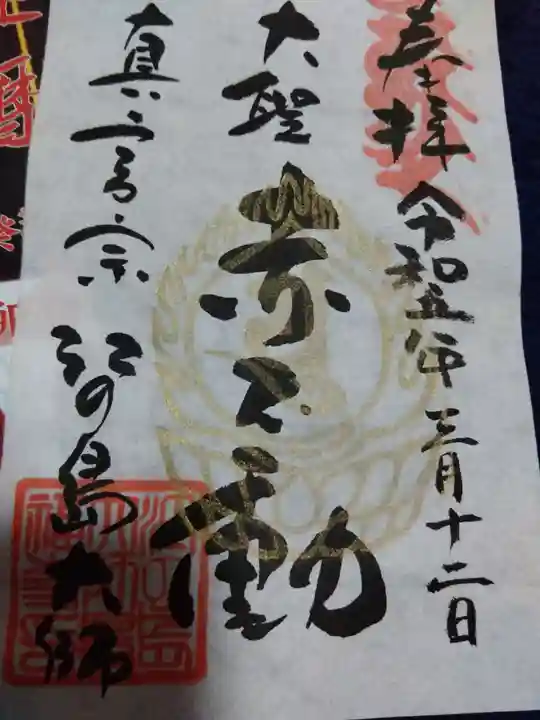 奉拝 令和五年三月十二日
大聖 赤不動
真言宗 江の島大師